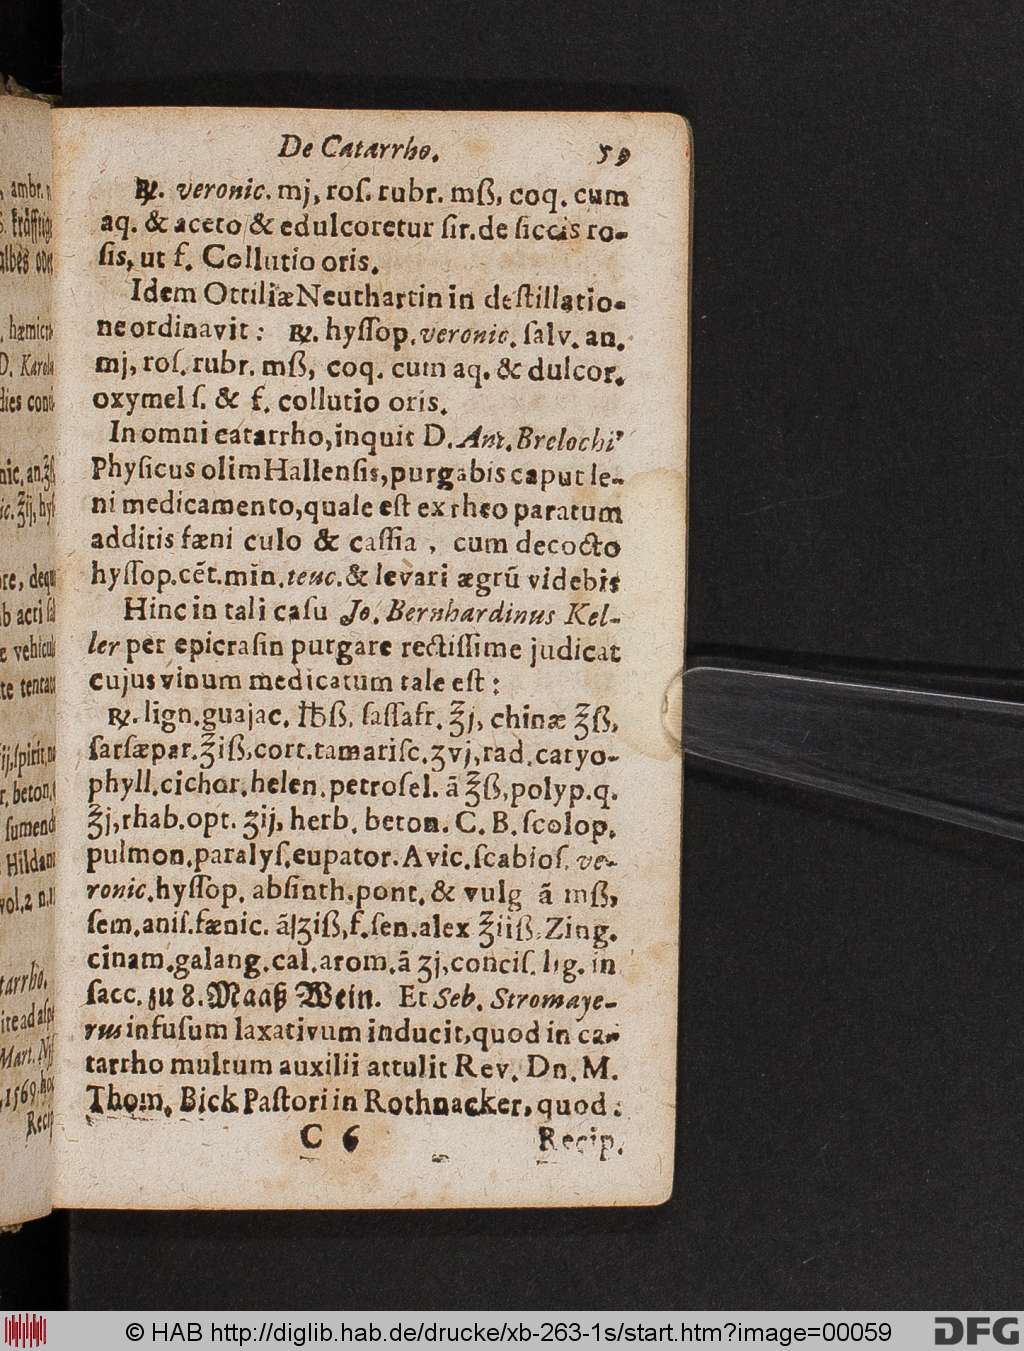 De Catarrho. 59
℞. veronic. mj, roſ. rubr. mß, coq. cum
aq. & aceto & edulcoretur ſir. de ſiccis ro-
ſis, ut f. Collutio oris.
Idem Ottiliæ Neuthartin in deſtillatio-
ne ordinavit: ℞. hyſſop. veronic. ſalv. an.
mj, roſ. rubr. mß, coq. cum aq. & dulcor.
oxymel ſ. & f. collutio oris.
In omni catarrho, inquit D. Ant. Brelochi⁹
Phyſicus olim Hallenſis, purgabis caput le-
ni medicamento, quale eſt ex rheo paratum
additis fæni culo & caſſia, cum decocto
hyſſop. cẽt. min. teuc. & levari ægrũ videbis
Hinc in tali caſu Jo. Bernhardinus Kel-
ler per epicraſin purgare rectiſſime judicat
cujus vinum medicatum tale eſt:
℞. lign. guajac. ℔ß. ſaſſafr. ℥j, chinæ ℥ß,
ſarſæpar. ℥iß, cort. tamariſc. ʒvj, rad. caryo-
phyll. cichor. helen. petroſel. ã ℥ß, polyp. q.
℥j, rhab. opt. ʒij, herb. beton. C. B. ſcolop.
pulmon. paralyſ. eupator. Avic. ſcabioſ. ve-
ronic. hyſſop. abſinth. pont. & vulg ã mß,
ſem. aniſ. fænic. ã ʒiß, f. ſen. alex ℥iiß. Zing.
cinam. galang. cal. arom. ã ʒj, conciſ. lig. in
ſacc. zu 8. Maaß Wein. Et Seb. Stromaye-
rus infuſum laxativum inducit, quod in ca-
tarrho multum auxilii attulit Rev. Dn. M.
Thom. Bick Paſtori in Rothnacker, quod:
C 6 Recip.
, ambr.
kräfftig
albes oder
, hæmicr
D. Karol
dies cont
nic. an. ℥ß
ic. ℥ij, hyſ
re, dequ
b acti ſal
e vehicul
te tentat
ij, ſpirit.
r. beton.
ſumend
Hildan
vol. 2 n. 11
tarrho.
ite ad aſp
Mart.
, 1569. hoc
Recip
© HAB http://diglib.hab.de/drucke/xb-263-1s/start.htm?image=00059
DFG